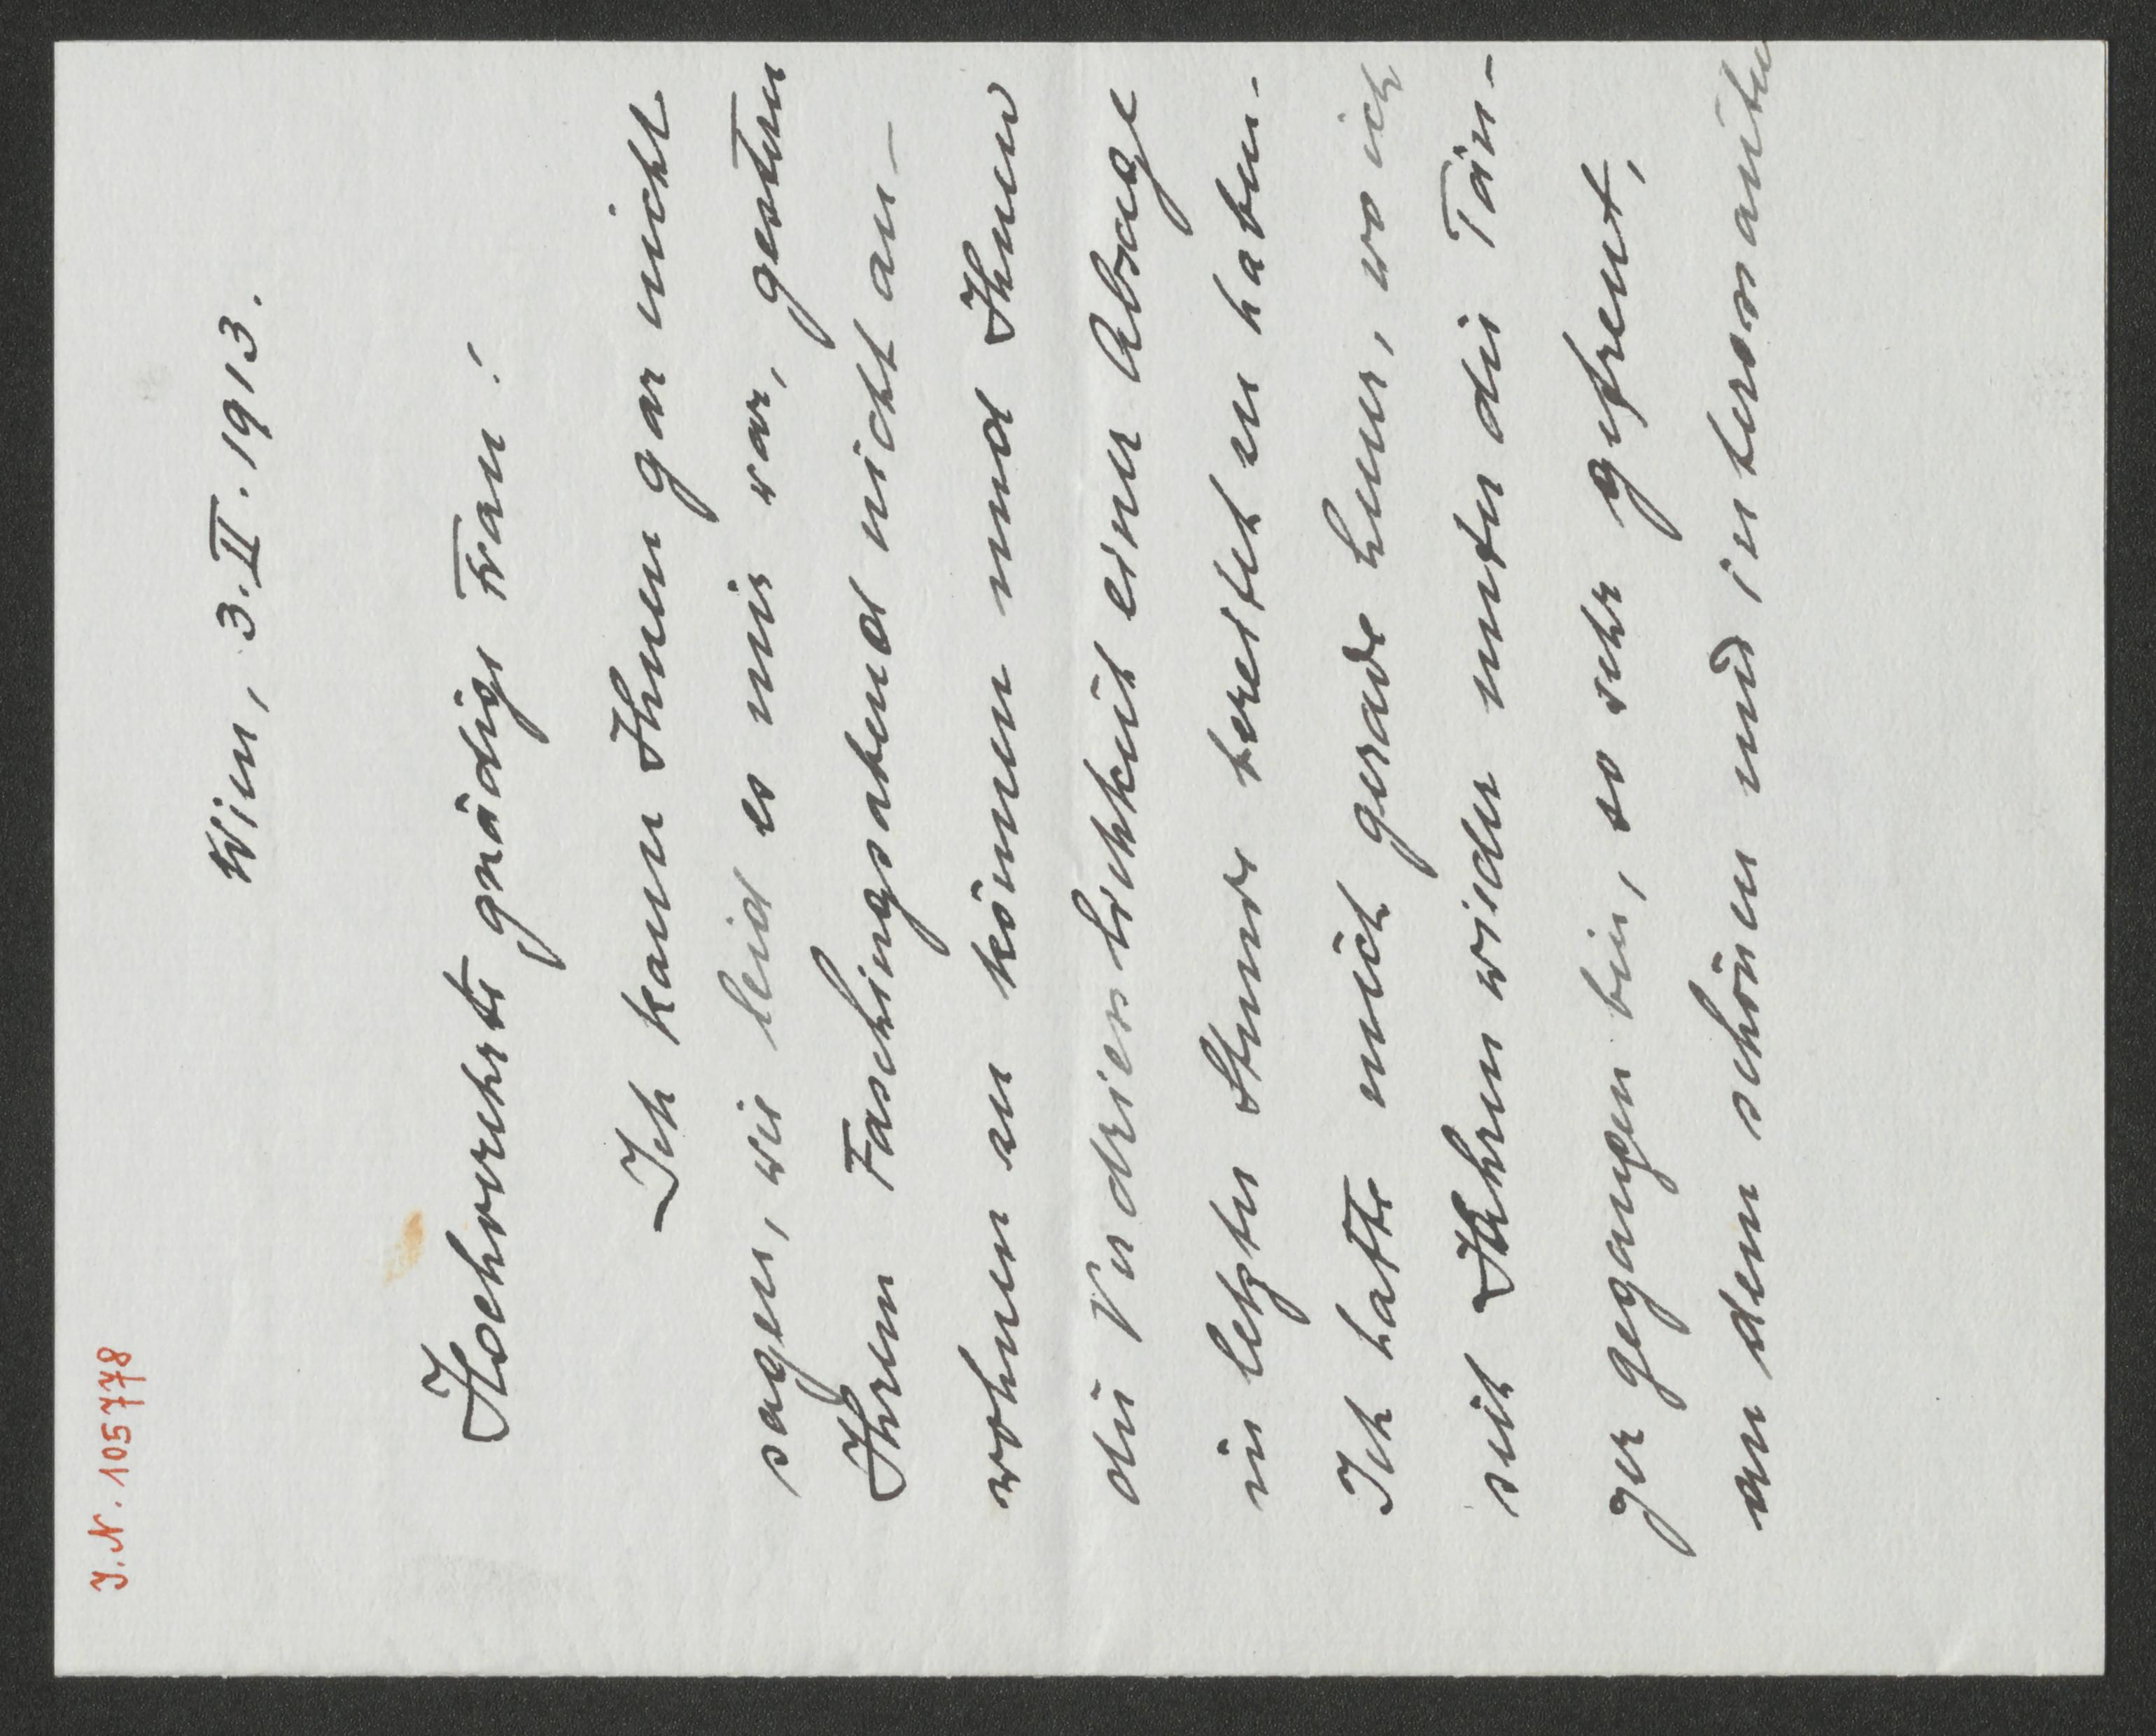 J.N. 105778
Wien, 3. II. 1913.
Hochverehrte gnädige Frau!
Ich kann Ihnen gar nicht
sagen, wie leid es mir war, gestern
Ihrem Faschingsabend nicht an-
wohnen zu können und Ihnen
die Verdriesslichkeit einer Absage
in letzter Stunde bereitet zu haben.
Ich hatte mich gerade heuer, wo ich
seit Jahren wieder unter die Tän-
zer gegangen bin, so sehr gefreut,
an dem schönen und interessanten